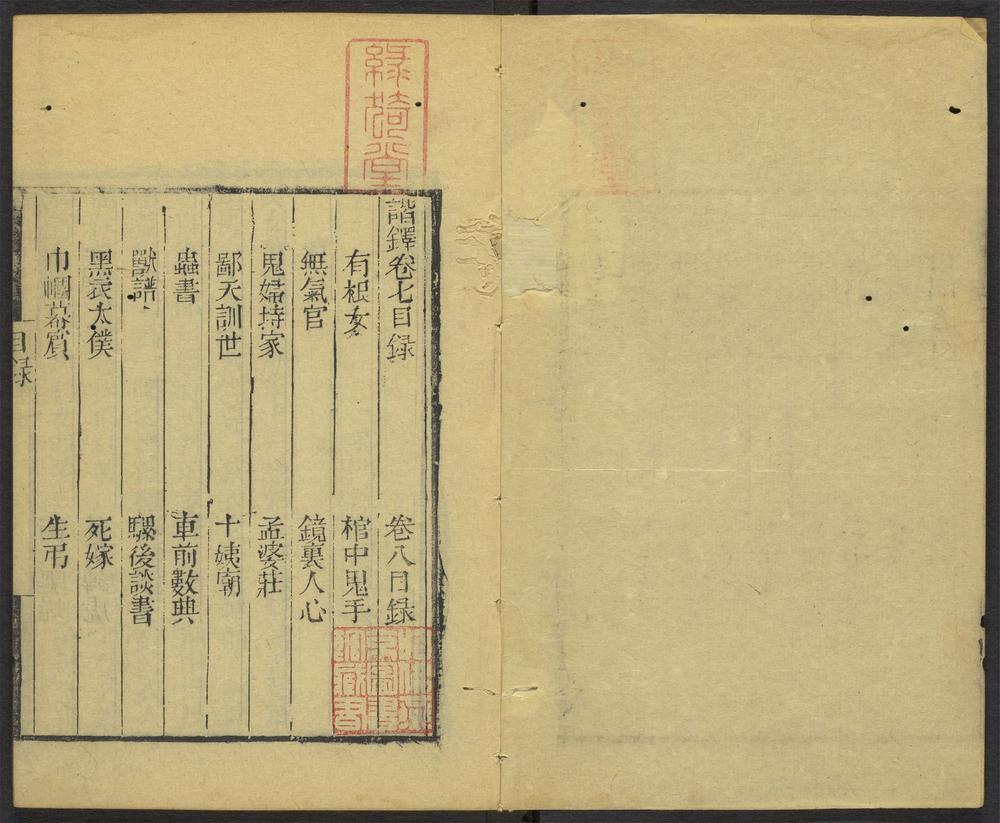 諧鐸卷七目録 卷八目録
有根女 棺中鬼手
無氣官 鏡裏人心
鬼婦持家 孟婆莊
鄙天訓世 十姨廟
蟲書 車前數典
獸譜 騾後談書
黑衣太僕 死嫁
巾幗幕賓 生弔
目録